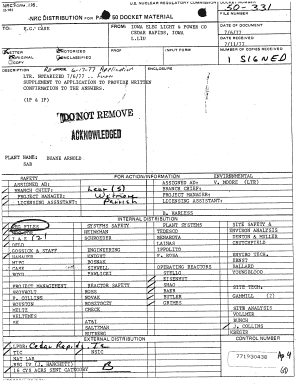 NRC FORM 195
U.S. NUCLEAR REGULATORY COMMISSION
DOCKET NUMBER
50-331
NRC DISTRIBUTION FOR PART 50 DOCKET MATERIAL
FILE NUMBER
TO: E.G. CASE
FROM: IOWA ELEC LIGHT & POWER CO
CEDAR RAPIDS, IOWA
L. LIU
DATE OF DOCUMENT
7/6/77
DATE RECEIVED
7/11/77
LETTER
ORIGINAL
COPY
NOTORIZED
UNCLASSIFIED
PROP
INPUT FORM
NUMBER OF COPIES RECEIVED
1 SIGNED
DESCRIPTION
ENCLOSURE
LTR. NOTARIZED 7/6/77
SUPPLEMENT TO APPLICATION TO PROVIDE WRITTEN
CONFIRMATION TO THE ANSWERS.
(1P & 1P)
DO NOT REMOVE
ACKNOWLEDGED
PLANT NAME: DUANE ARNOLD
SAB
FOR ACTION/INFORMATION
SAFETY
ENVIRONMENTAL
ASSIGNED AD:
ASSIGNED AD: V. MOORE (LTR)
BRANCH CHIEF: Lear (5)
BRANCH CHIEF:
PROJECT MANAGER:
PROJECT MANAGER:
LICENSING ASSISTANT: Parrish
LICENSING ASSISTANT:
B. HARLESS
INTERNAL DISTRIBUTION
REG FILES
SYSTEMS SAFETY
PLANT SYSTEMS
SITE SAFETY &
HEINEMAN
TEDESCO
ENVIRON ANALYSIS
I & E (2)
SCHROEDER
BENAROYA
DENTON & MULLER
OELD
LAINAS
CRUTCHFIELD
GOSSICK & STAFF
ENGINEERING
IPPOLITO
HANAUER
KNIGHT
F. ROSA
ENVIRO TECH.
MIPC
BOSNAK
ERNST
CASE
SIHWEIL
OPERATING REACTORS
BALLARD
BOYD
PAWLICKI
STELLO
YOUNGBLOOD
EISENHUT
PROJECT MANAGEMENT
REACTOR SAFETY
SHAO
SITE TECH.
SKOVHOLT
ROSS
BAER
GAMMILL (2)
P. COLLINS
NOVAK
BUTLER
HOUSTON
ROSZTOCZY
GRIMES
SITE ANALYSIS
MELTZ
CHECK
VOLLMER
HELTEMES
BUNCH
AT&I
J. COLLINS
SALTZMAN
KREGER
RUTBERG
EXTERNAL DISTRIBUTION
CONTROL NUMBER
LPDR: Cedar Rapids, Ia
TIC
NSIC
NAT LAB
REG IV (J. HANCHETT)
16 CYS ACRS SENT CATEGORY B
771930438